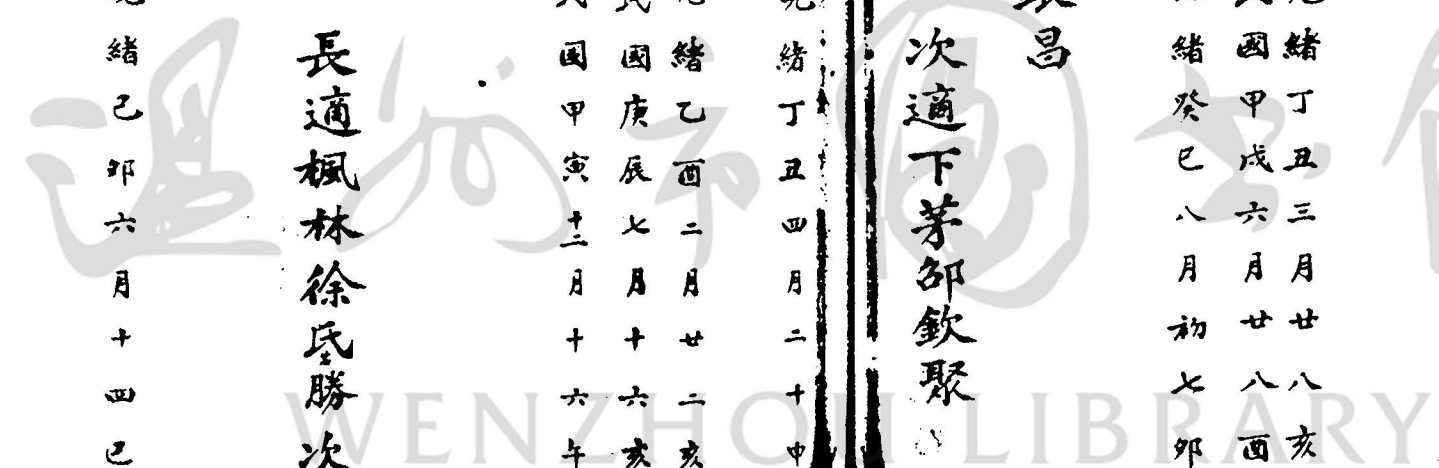 緒丁丑三月廿八亥
國甲戌六月廿八酉
緒癸巳八月初七卯
昌
次適下茅邵欽聚
緒丁丑四月二十申
緒乙酉二月廿二亥
國庚辰七月十六亥
國甲寅十二月十六午
長適楓林徐氏勝次
緒己卯六月十四巳
溫州市圖書館
WENZHOU LIBRARY